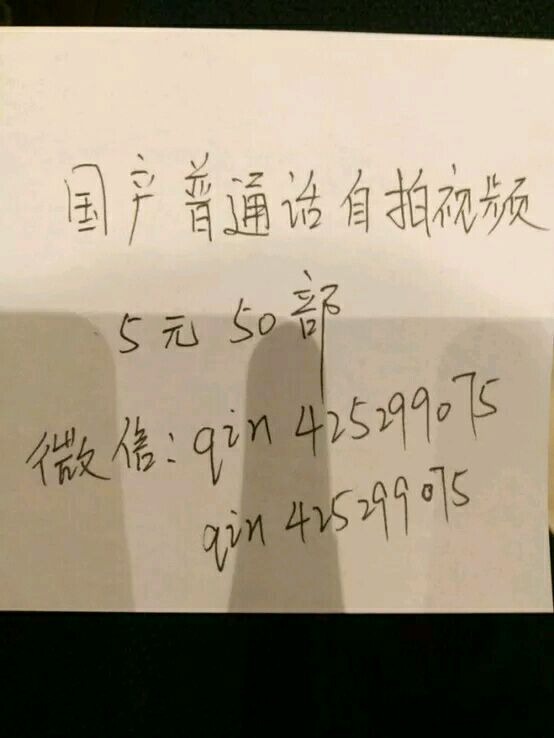 国产普通话自拍视频
5元50部
微信:qin425299075
qin425299075